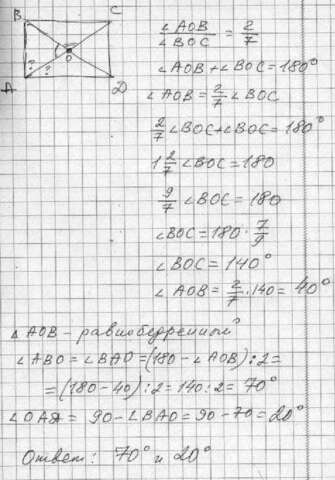 B C
O
? ?
A D
∠AOB/∠BOC = 2/7
∠AOB+∠BOC=180°
∠AOB=2/7 ∠BOC
2/7 ∠BOC+∠BOC=180°
1 2/7 ∠BOC=180
9/7 ∠BOC=180
∠BOC=180·7/9
∠BOC=140°
∠AOB=2/7·140=40°
△AOB-равнобедренный
∠ABO=∠BAO=(180-∠AOB):2=
=(180-40):2=140:2=70°
∠OAД=90-∠BAO=90-70=20°
Ответ: 70° и 20°